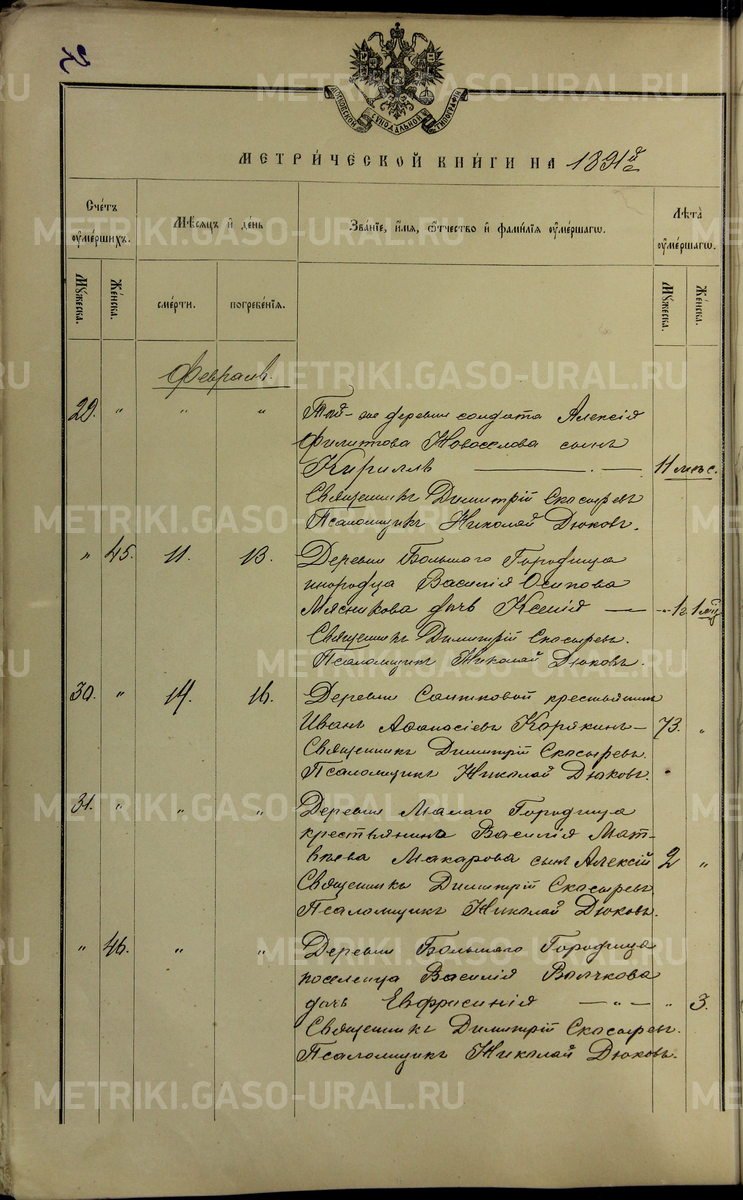 МОСКОВСКОЙ СѴНОДАЛЬНОЙ ТИПОГРАФІИ
МЕТРИ́ЧЕСКОЙ КНИ́ГИ НА 1891й г.
Сче́тъ ᲂу҆ме́ршихъ.
Мѣ́сяцъ и҆ де́нь
Зва́нїе, и҆́мѧ, ѻ҆́тчество и҆ фами́лїѧ ᲂу҆ме́ршагѡ.
Лѣ́та ᲂу҆ме́ршагѡ.
Мꙋ́жеска.
Же́нска.
сме́рти.
погребе́нїѧ.
Мꙋ́жеска.
Же́нска.
Февраль.
29. " " " Той-же деревни солдата Алексія
Филиппова Новоселова сынъ
Кириллъ 11 мѣс.
Священникъ Димитрій Скосыревъ
Псаломщикъ Николай Дюковъ.
" 45. 11. 13. Деревни Большаго Городища
инородца Василія Осипова
Мясникова дочь Ксенія 1 г. 1 мѣс.
Священникъ Димитрій Скосыревъ.
Псаломщикъ Николай Дюковъ.
30. " 14. 16. Деревни крестьянинъ
Иванъ Аѳанасіевъ Корякинъ 73. "
Священникъ Димитрій Скосыревъ.
Псаломщикъ Николай Дюковъ.
31. " " " Деревни Малаго Городища
крестьянина Василія Мат-
вѣева Макарова сынъ Алексій 2 "
Священникъ Димитрій Скосыревъ
Псаломщикъ Николай Дюковъ.
" 46. " " Деревни Большаго Городища
поселенца Василія Волчкова
дочь Евфросинія " " 3.
Священникъ Димитрій Скосыревъ.
Псаломщикъ Николай Дюковъ.
METRIKI.GASO-URAL.RU